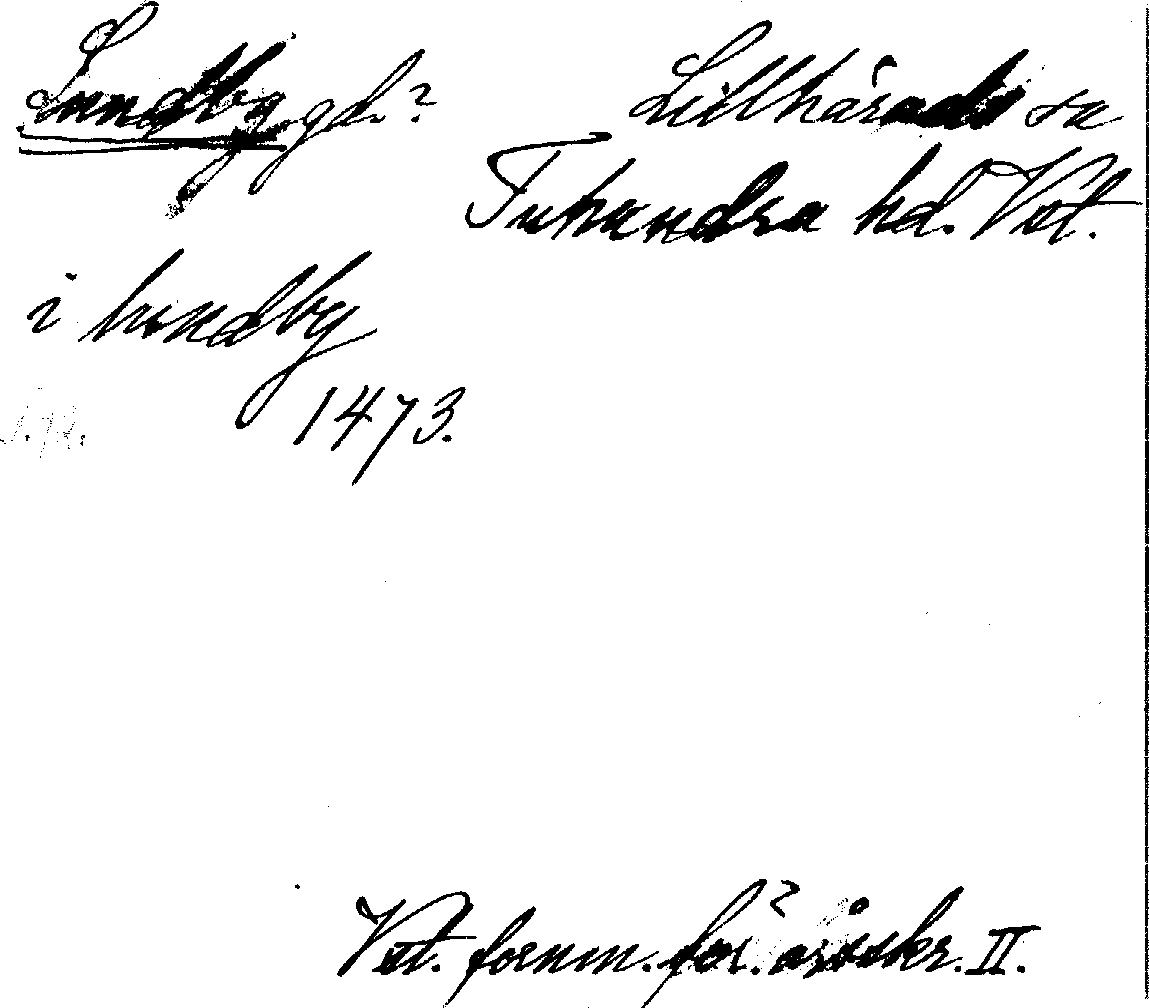 Lundby gd.? Lillhärads sn
Tuhundra hd. Vst.
i lundby
1473.
Vst. fornm. för.s årsskr. II.